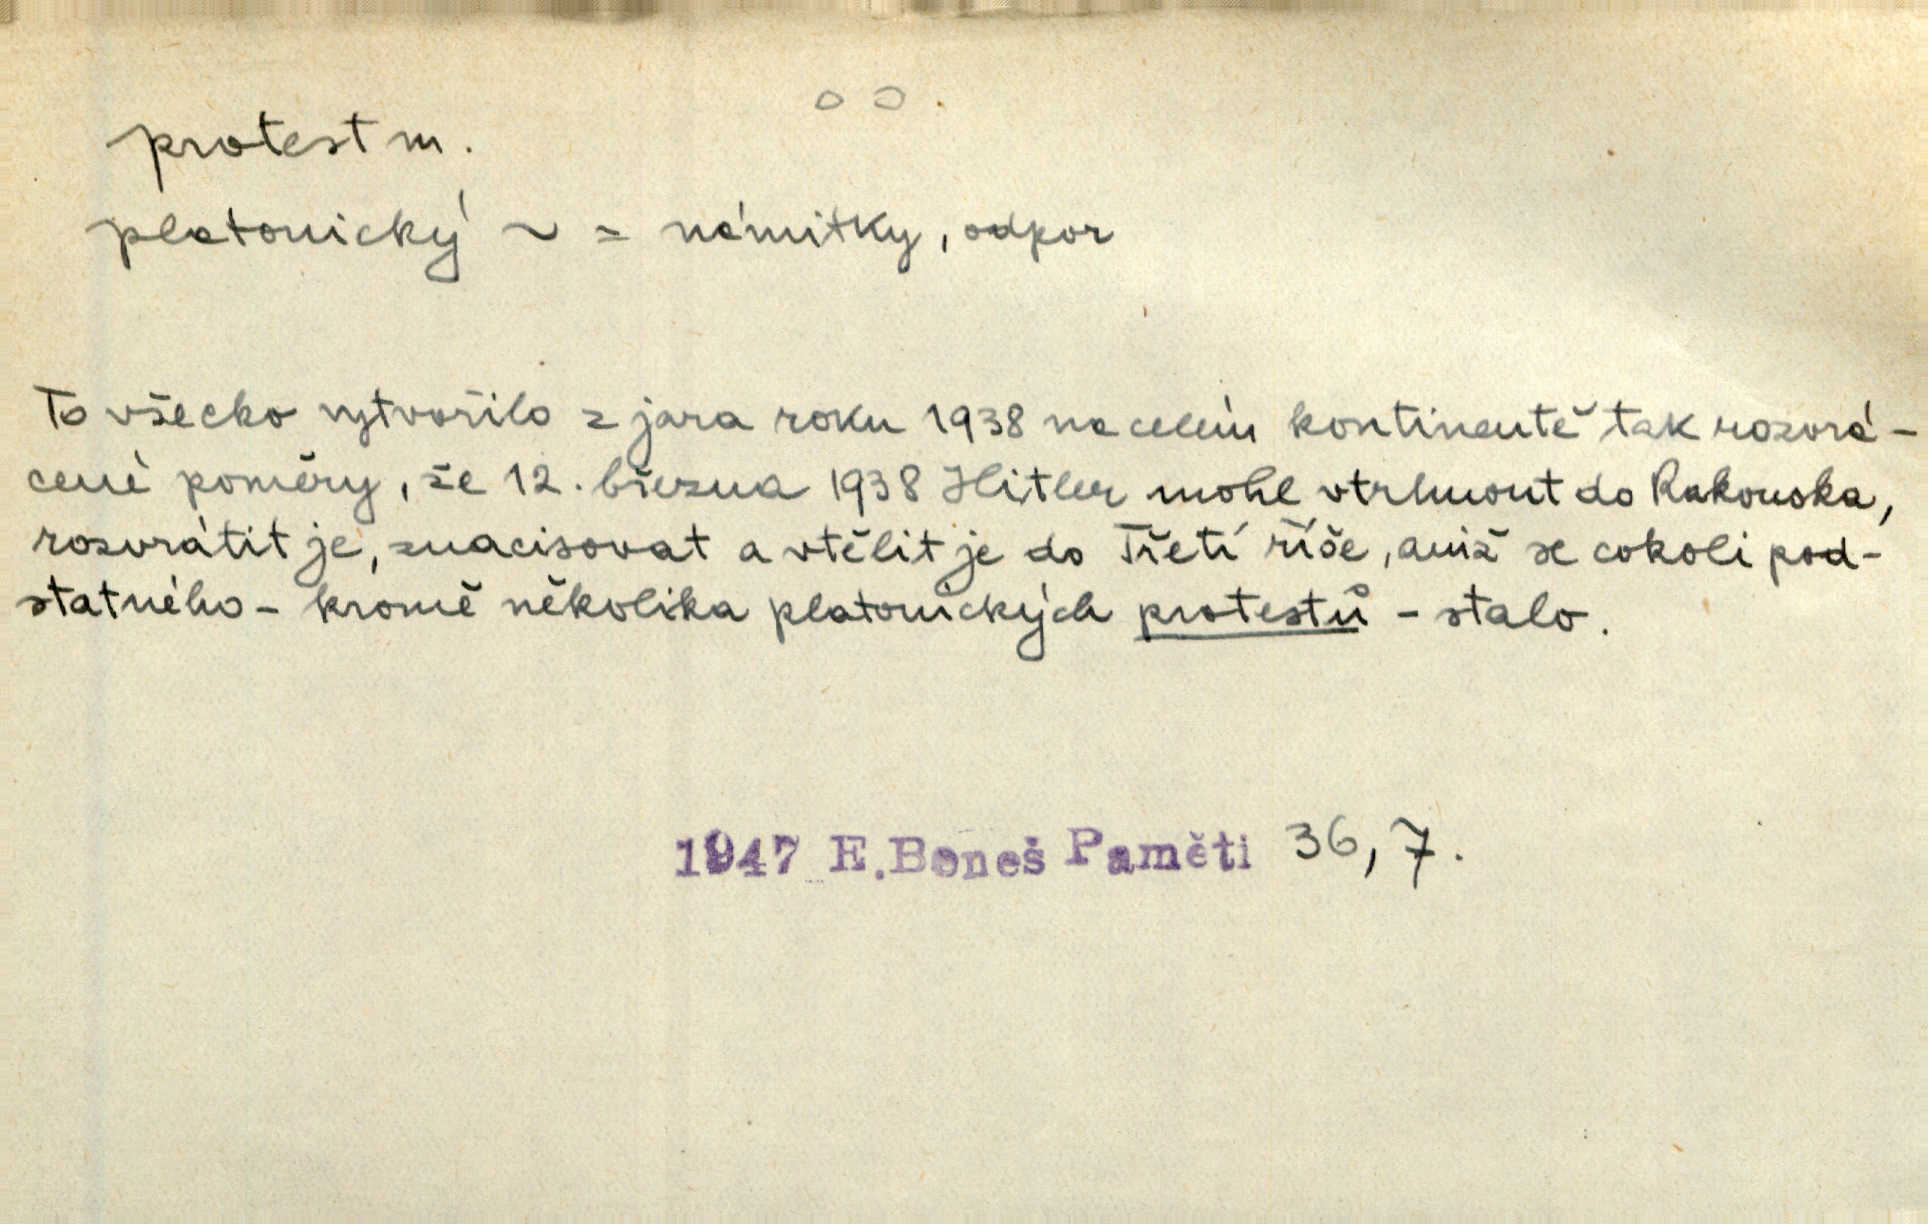 protest m.
platonický ~ = námitky, odpor
To všecko vytvořilo z jara roku 1938 na celém kontinentě tak rozvrá-
cené poměry, že 12. března 1938 Hitler mohl vtrhnout do Rakouska,
rozvrátit je, znacisovat a vtělit je do Třetí říše, aniž se cokoli pod-
statného - kromě několika platonických protestů - stalo.
1947 E. Beneš Paměti 36, 7.